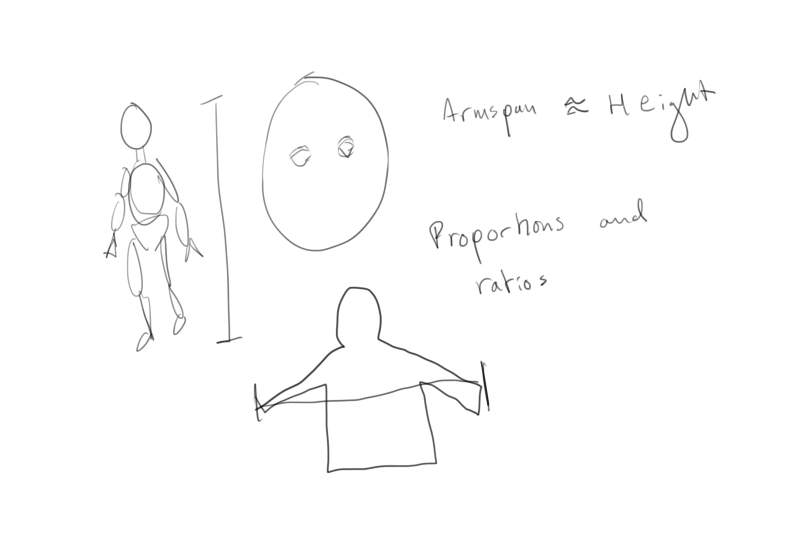 Armspan ≈ Height
Proportions and
ratios